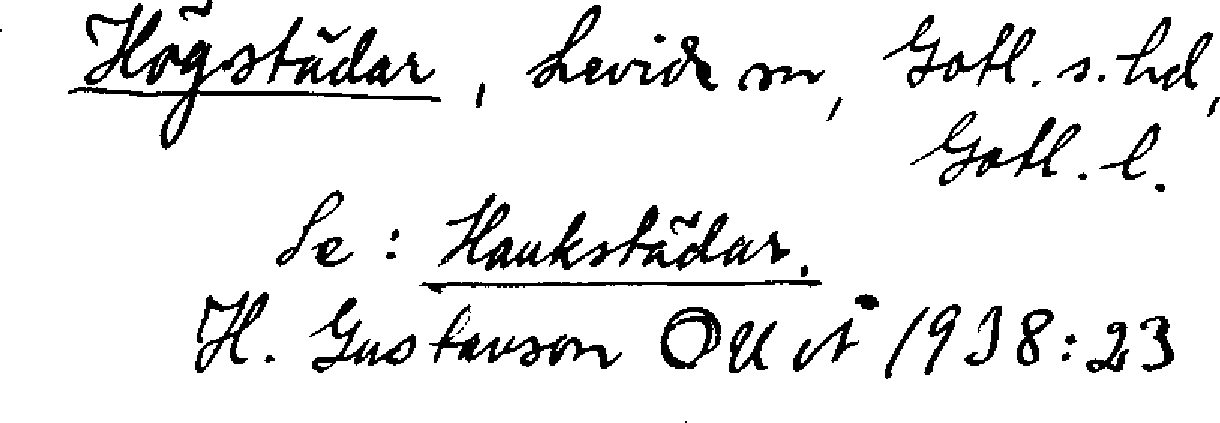 Högstädar, Levide sn, Gotl. s. hd,
Gotl. l.
Se: Haukstädar.
H. Gustavson OUÅ 1938:23